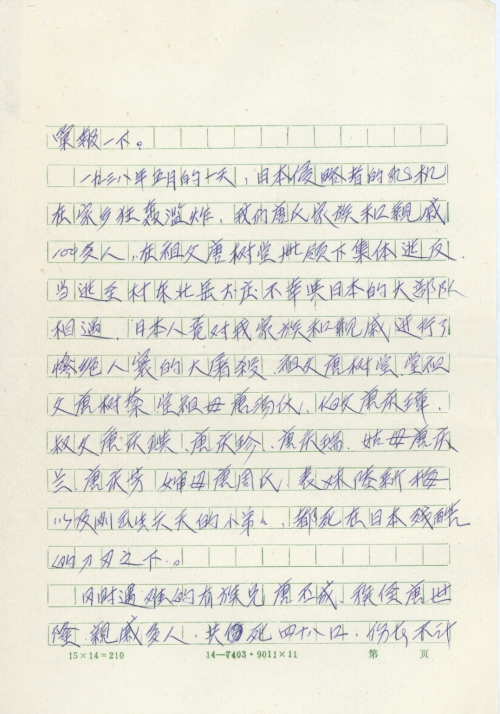 禀报一下。
一九三八年五月的一天，日本侵略者的飞机
在家乡狂轰滥炸，我们唐氏家族和親戚
100多人，在祖父唐树堂 带领下集体逃反.
当逃至村东北岳大庄不幸与日本的大部队
相遇，日本人竟对我家族和親戚進行了
惨绝人寰的大屠殺，祖父唐树堂、堂祖
父唐树荣 堂祖母唐 氏、伯父唐庆璋、
叔父唐庆瑛、唐庆珍、唐庆瑞、姑母唐庆
兰、唐庆芳 婶母唐周氏、表妹陸新梅
以及刚出生六天的小弟弟，都死在日本残酷
的刀刃之下。
同时遇难的有族兄唐丕成、族侄唐世
隆、親戚多人，共死四十八口，伤者不计
15×14=210 14—7403·9011×11 第 页